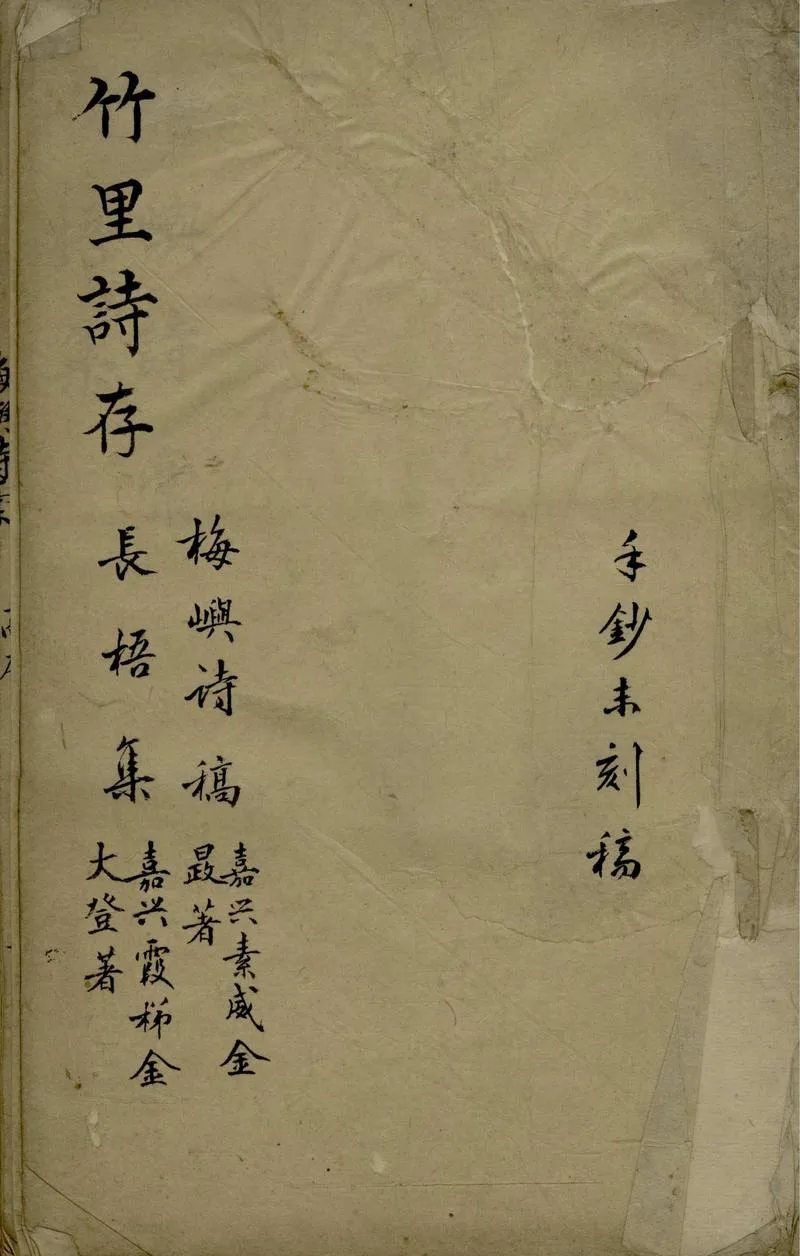 手鈔未刻稿
梅嶼诗稿
嘉兴素威金
著
竹里詩存
長梧集
嘉兴霞梯金
大登著